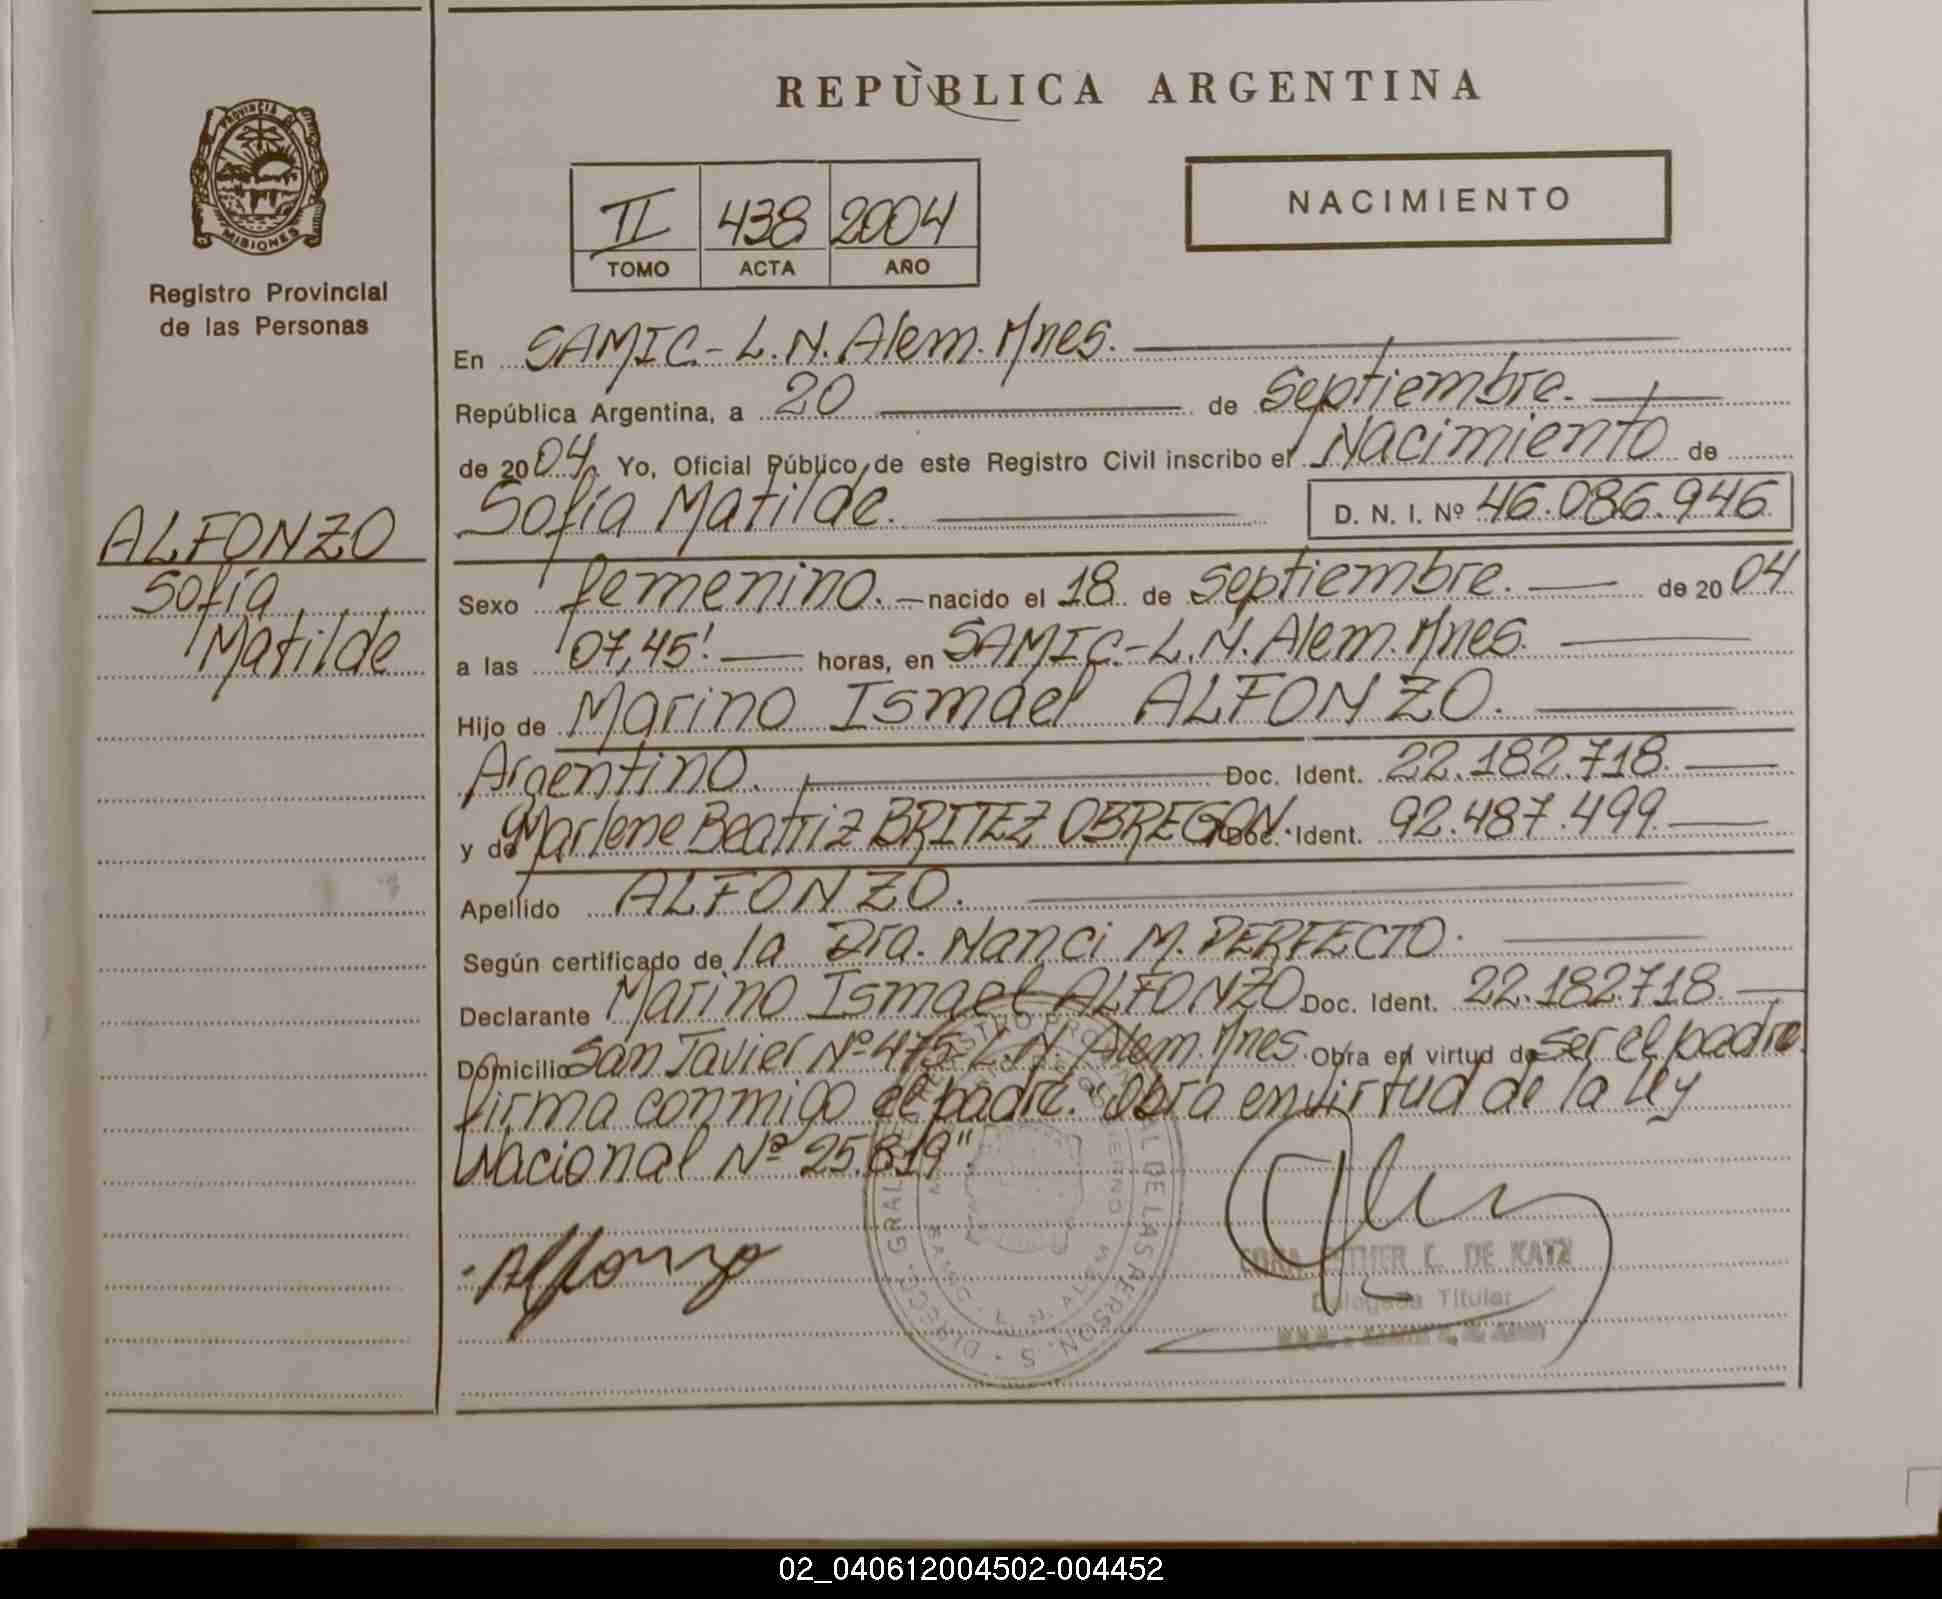 REPÙBLICA ARGENTINA
PROVINCIA DE
MISIONES
Registro Provincial
de las Personas
II 438 2004
TOMO ACTA AÑO
NACIMIENTO
En SAMIC.- L.N. Alem. Mnes.
República Argentina, a 20 de septiembre.
de 2004. Yo, Oficial Público de este Registro Civil inscribo el Nacimiento de
Sofía Matilde. D. N. I. Nº 46.086.946
ALFONZO
Sofía
Matilde
Sexo femenino. nacido el 18 de septiembre. de 2004
a las 07,45' horas, en SAMIC.- L.N. Alem. Mnes.
Hijo de Marino Ismael ALFONZO.
Argentino. Doc. Ident. 22.182.718.
y de Marlene Beatriz BRITEZ OBREGON. Doc. Ident. 92.487.499.
Apellido ALFONZO.
Según certificado de la Dra. Nanci M. PERFECTO.
Declarante Marino Ismael ALFONZO Doc. Ident. 22.182.718.
Domicilio San Javier Nº 475- L.N. Alem. Mnes. Obra en virtud de ser el padre
firma conmigo el padre. "Obra en virtud de la ley
Nacional Nº 25.819".
Alfonzo
DE KATZ
Delegada Titular
02_040612004502-004452